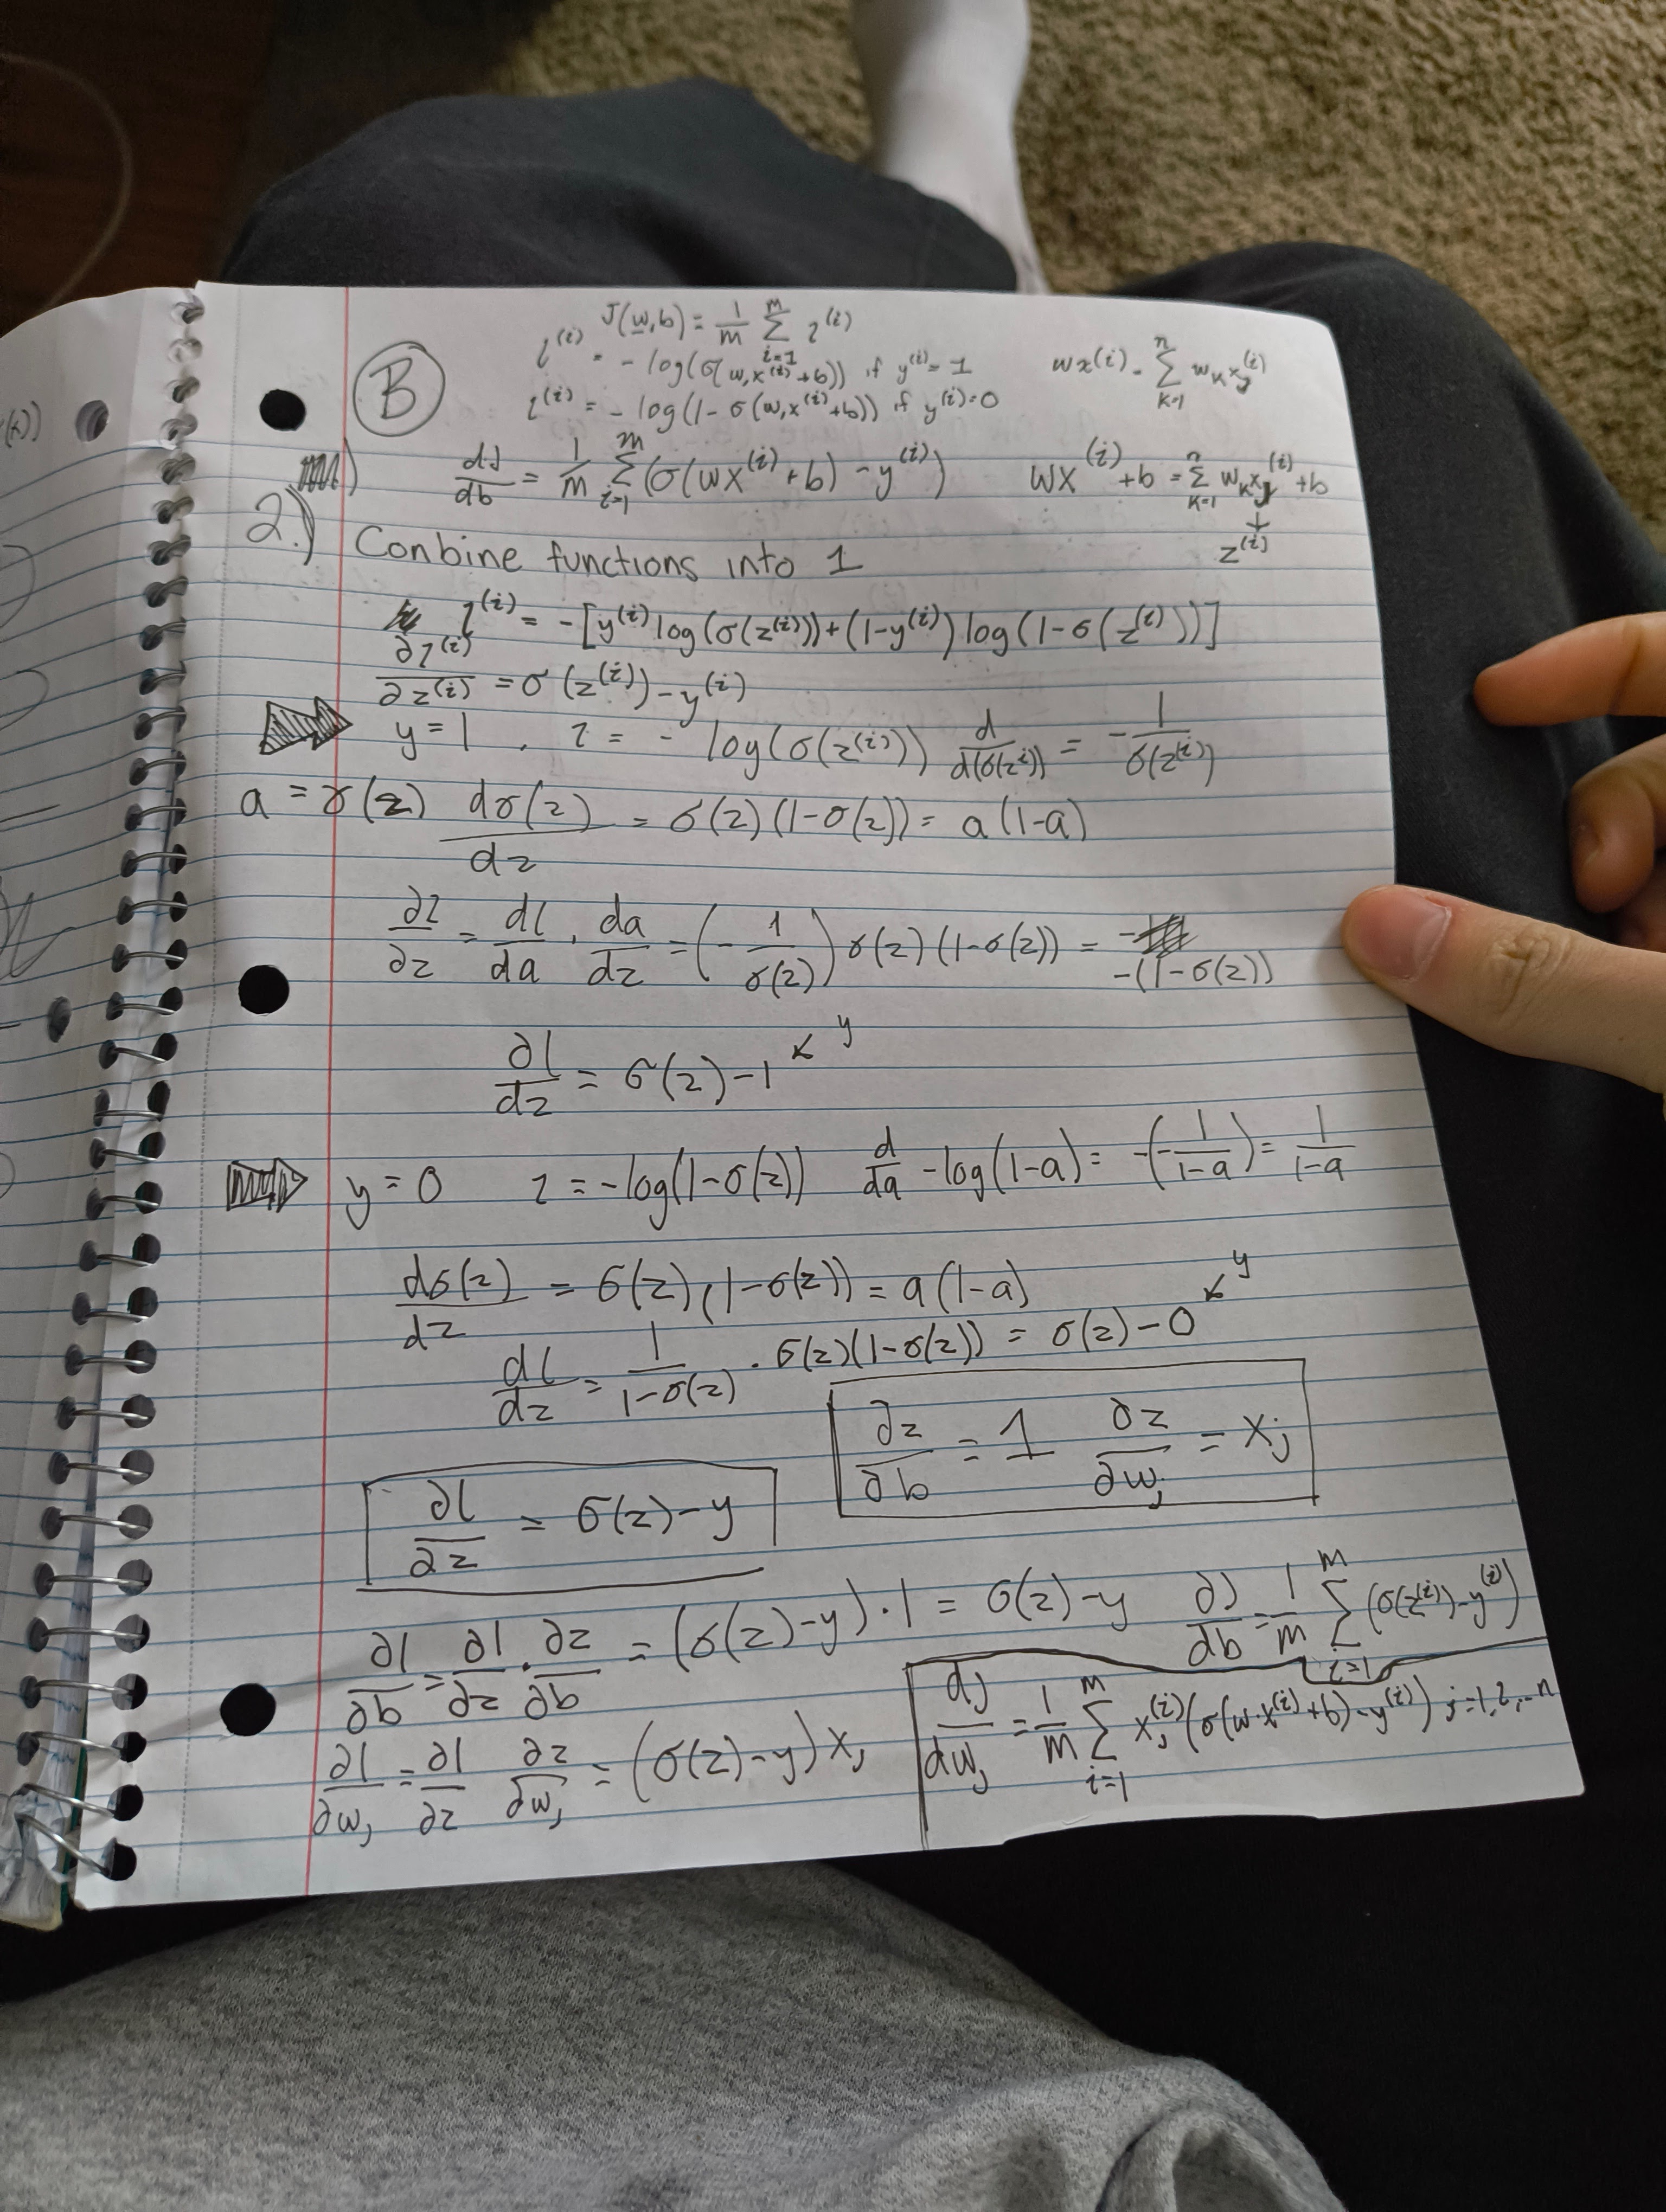 J(w,b) = 1/m Σ_{i=1}^{m} l^(i)
l^(i) = - log(σ(w,x^(i)+b)) if y^(i) = 1
wx(i) = Σ_{k=1}^{n} w_k x^(i)
l^(i) = - log(1 - σ(w,x^(i)+b)) if y^(i) = 0
B
dJ/db = 1/m Σ_{i=1}^{m} (σ(wx^(i) + b) - y^(i))
wx^(i) + b = Σ_{k=1}^{n} w_k x^(i) + b
z^(i)
2.) Conbine functions into 1
l^(i) = -[y^(i) log(σ(z^(i))) + (1-y^(i)) log(1-σ(z^(i)))]
∂l^(i)/∂z^(i) = σ(z^(i)) - y^(i)
y = 1, l = - log(σ(z^(i))) d/d(σ(z^i)) = - 1/σ(z^(i))
a = σ(z) dσ(z)/dz = σ(z)(1-σ(z)) = a(1-a)
∂l/∂z = dl/da · da/dz = (- 1/σ(z)) σ(z)(1-σ(z)) = -(1-σ(z))
∂l/dz = σ(z) - 1 y
y = 0 l = -log(1-σ(z)) d/da -log(1-a) = -(-1/1-a) = 1/1-a
dσ(z)/dz = σ(z)(1-σ(z)) = a(1-a)
dl/dz = 1/1-σ(z) · σ(z)(1-σ(z)) = σ(z) - 0 y
∂z/∂b = 1 ∂z/∂w_j = x_j
∂l/∂z = σ(z) - y
∂l/∂b = ∂l/∂z · ∂z/∂b = (σ(z)-y) · 1 = σ(z) - y
∂J/db = 1/m Σ_{i=1}^{m} (σ(z^(i)) - y^(i))
∂l/∂w_j = ∂l/∂z ∂z/∂w_j = (σ(z)-y)x_j
dJ/dw_j = 1/m Σ_{i=1}^{m} x_j^(i) (σ(w·x^(i)+b) - y^(i)) j=1,2,..n